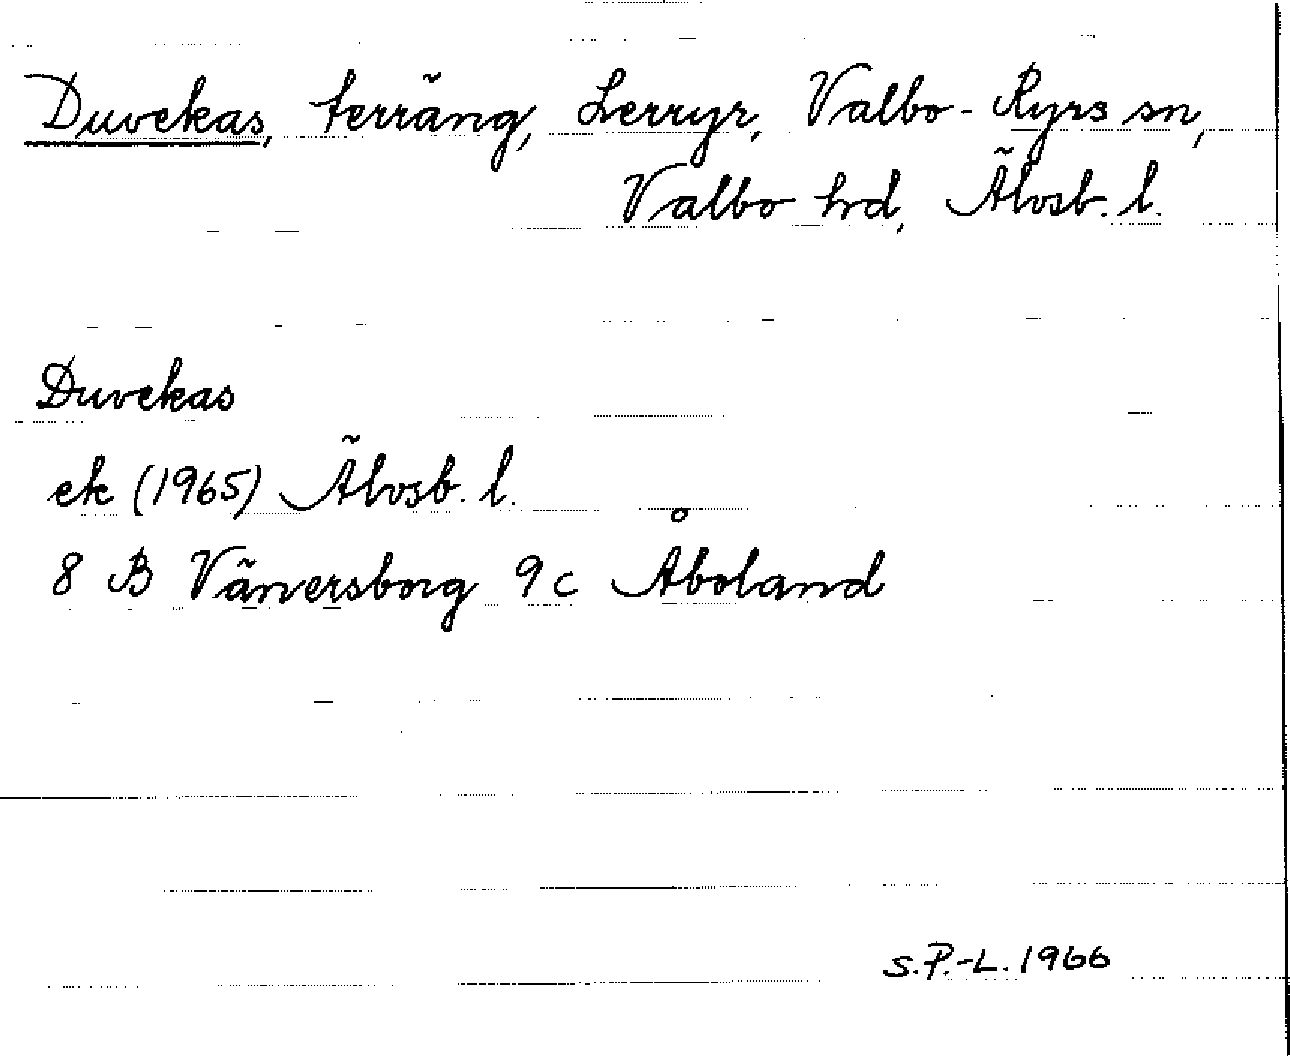 Duvekas, terräng, Lerryr, Valbo-Ryrs sn,
Valbo hrd, Älvsb. l.
Duvekas
ek (1965) Älvsb. l.
8 B Vänersborg 9 c Åboland
S.P.-L. 1966